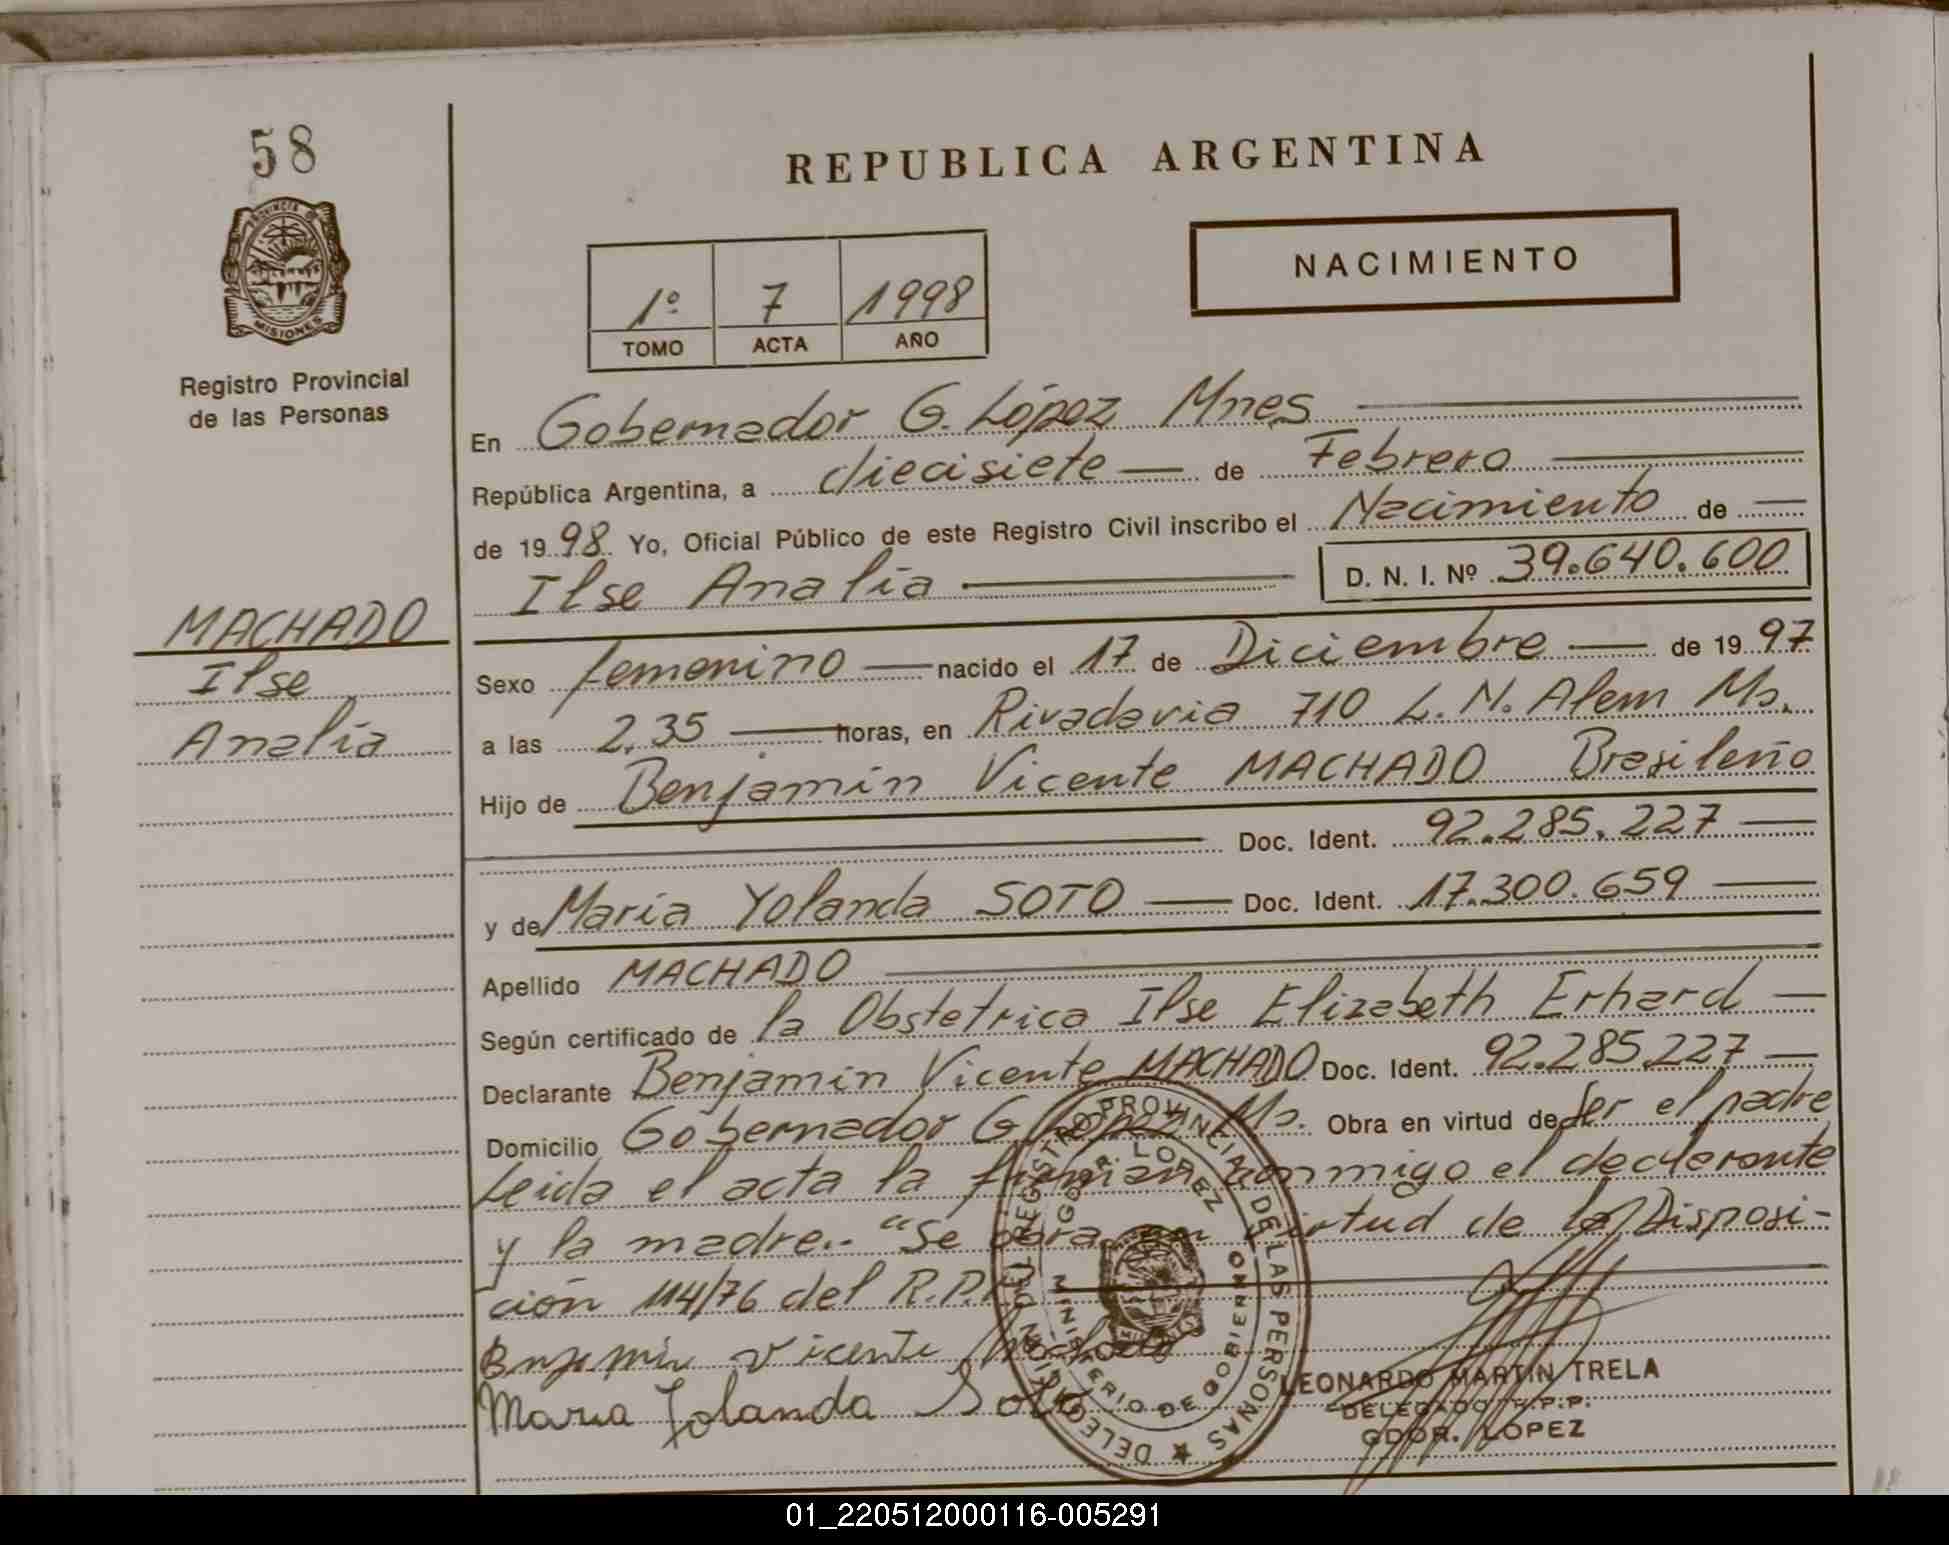 58
PROVINCIA DE
MISIONES
Registro Provincial
de las Personas
MACHADO
Ilse
Analía
REPUBLICA ARGENTINA
NACIMIENTO
1º 7 1998
TOMO ACTA AÑO
En Gobernador G. López Mnes
República Argentina, a diecisiete de Febrero
de 1998 Yo, Oficial Público de este Registro Civil inscribo el Nacimiento de
Ilse Analía D. N. I. Nº 39.640.600
Sexo femenino nacido el 17 de Diciembre de 1997
a las 2,35 horas, en Rivadavia 710 L. N. Alem Ms.
Hijo de Benjamín Vicente MACHADO Brasileño
Doc. Ident. 92.285.227
y de María Yolanda SOTO Doc. Ident. 17.300.659
Apellido MACHADO
Según certificado de la Obstetrica Ilse Elizabeth Erhard
Declarante Benjamín Vicente MACHADO Doc. Ident. 92.285.227
Domicilio Gobernador G López Ms. Obra en virtud de ser el padre
Leida el acta la firman conmigo el declarante
y la madre.- "Se obra en virtud de la Disposi-
ción 114/76 del R.P.
Benjamin Vicente Machado
Maria Yolanda Soto
DELEGACION DEL REGISTRO PROVINCIAL DE LAS PERSONAS
GDOR. LOPEZ
MINISTERIO DE GOBIERNO
LEONARDO MARTIN TRELA
DELEGADO R.P.P.
GDOR. LOPEZ
01_220512000116-005291